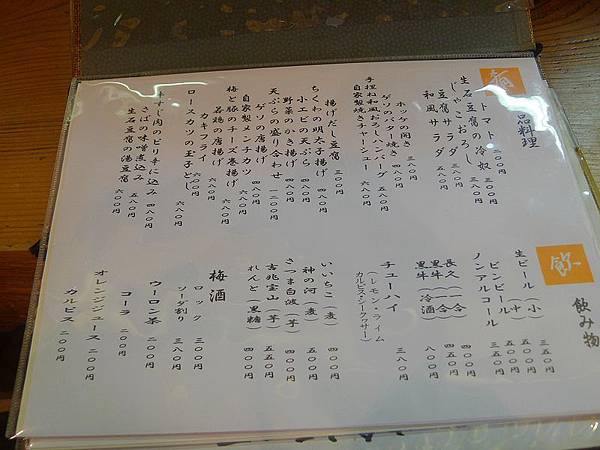 一品料理
トマト 三〇〇円
生石豆腐の冷奴 三〇〇円
じゃこおろし
豆腐サラダ 五八〇円
和風サラダ
ホッケの開き 三八〇円
ゲソのバター焼き 四八〇円
手捏ね和風おろしハンバーグ 五八〇円
自家製焼きチャーシュー 六八〇円
揚げだし豆腐 三〇〇円
ちくわの明太子揚げ
小エビの天ぷら 四八〇円
野菜のかき揚げ 四八〇円
天ぷらの盛り合わせ 一二〇〇円
ゲソの唐揚げ 四八〇円
自家製メンチカツ
梅と豚のチーズ巻揚げ 六八〇円
若鶏の唐揚げ 六八〇円
カキフライ
ロースカツの玉子とじ 六八〇円
牛すじ肉のピリ辛に込み
さばの味噌煮込み 五八〇円
生石豆腐の湯豆腐 六〇〇円
飲み物
生ビール (小) 三五〇円
(中) 五五〇円
ビンビール 五五〇円
ノンアルコール
長久 (一合) 四〇〇円
黒牛 (一合) 四五〇円
黒牛 (冷酒) 八〇〇円
チューハイ 三八〇円
(レモン・ライム
カルピス・シークヮサー)
いいちこ (麦) 四〇〇円
神の河 (麦) 五五〇円
さつま白波 (芋) 四〇〇円
吉兆宝山 (芋) 五五〇円
れんと (黒糖) 四〇〇円
梅酒
ロック 三〇〇円
ソーダ割り
ウーロン茶 二〇〇円
コーラ 二〇〇円
オレンジジュース 二〇〇円
カルピス 二〇〇円